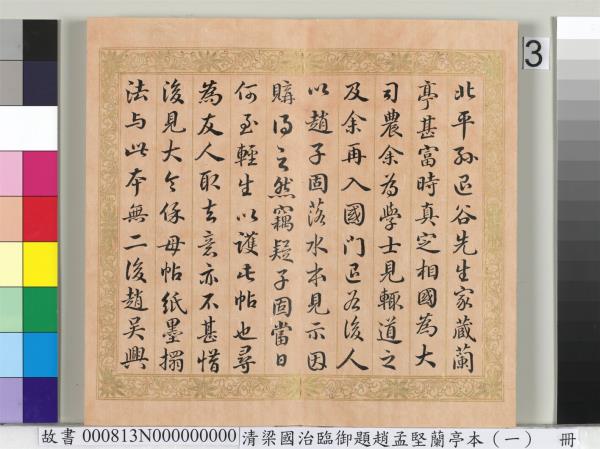 北平孫退谷先生家藏蘭
亭甚富時真定相國為大
司農余為學士見輒道之
及余再入國門退谷後人
以趙子固落水本見示因
購得之然竊疑子固當日
何至輕生以護此帖也尋
為友人取去意亦不甚惜
後見大令保母帖紙墨搨
法与此本無二後趙吳興
3
故書 000813N000000000 清梁國治臨御題趙孟堅蘭亭本（一） 冊